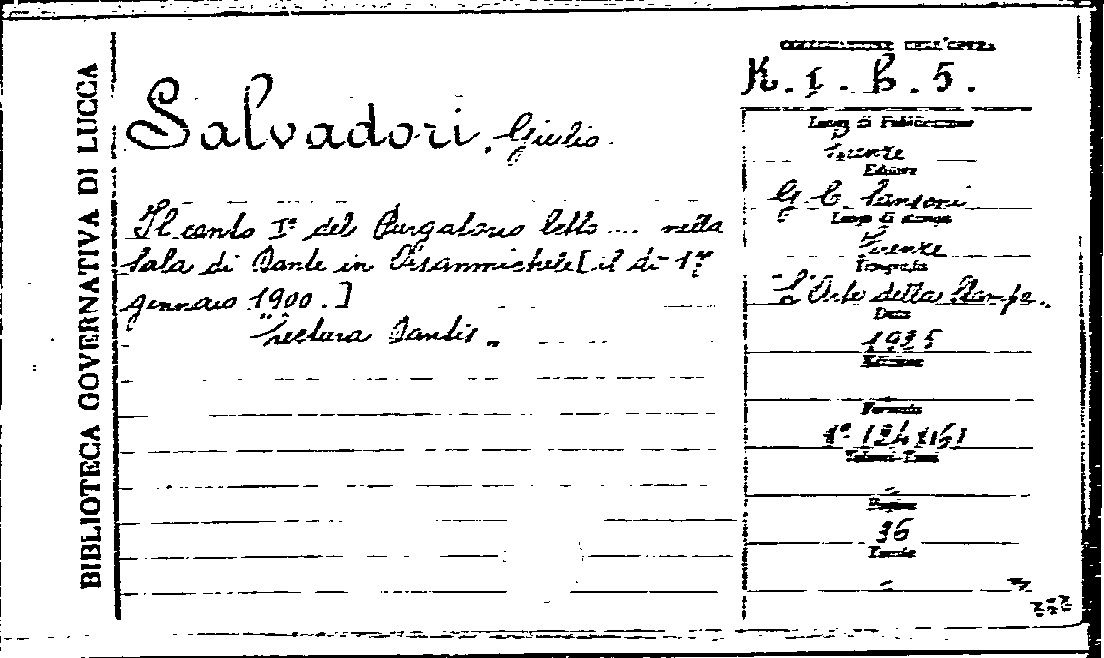 BIBLIOTECA GOVERNATIVA DI LUCCA
Salvadori, Giulio.
Il canto I° del Purgatorio letto .... nella
Sala di Dante in Orsanmichele [il dì 1°
gennaio 1900.]
"Lectura Dantis"
DELL'OPERA
K. I. B. 5.
Luogo di Pubblicazione
Firenze
Editore
G. C. Sansoni
Luogo di stampa
Firenze
Tipografia
"L'Arte della Stampa".
Data
1925
Edizione
Formato
(24x16)
Volumi
Pagine
36
Tavole